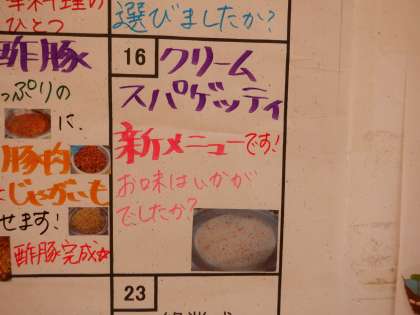 華料理の
ひとつ
選びましたか?
酢豚
っぷりの
に、
豚肉
じゃがいも
せます!
酢豚完成☆
16 クリーム
スパゲッティ
新メニューです!
お味はいかが
でしたか?
23